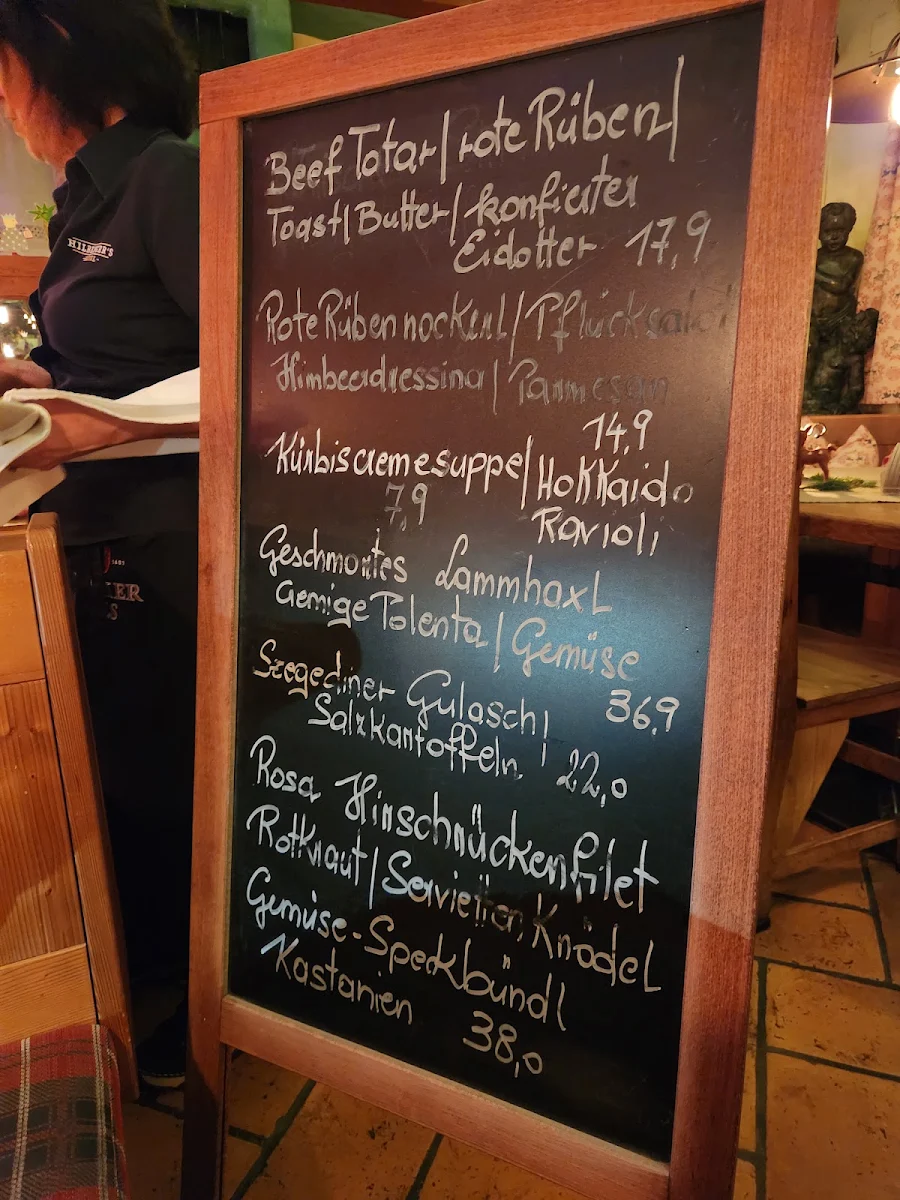 Beef Tatar/rote Rüben/
Toast/Butter/konfierter
Eidotter 17,9
Rote Rüben nockerl/Pflücksalat
Himbeerdressing/Parmesan
14,9
Kürbiscremesuppe/Hokkaido
7,9 Ravioli
Geschmortes Lammhaxl
Cremige Polenta/Gemüse
36,9
Szegediner Gulasch/
Salzkartoffeln 22,0
Rosa Hirschrückenfilet
Rotkraut/Servietten Knödel
Gemüse-Speckbündl
Kastanien 38,0